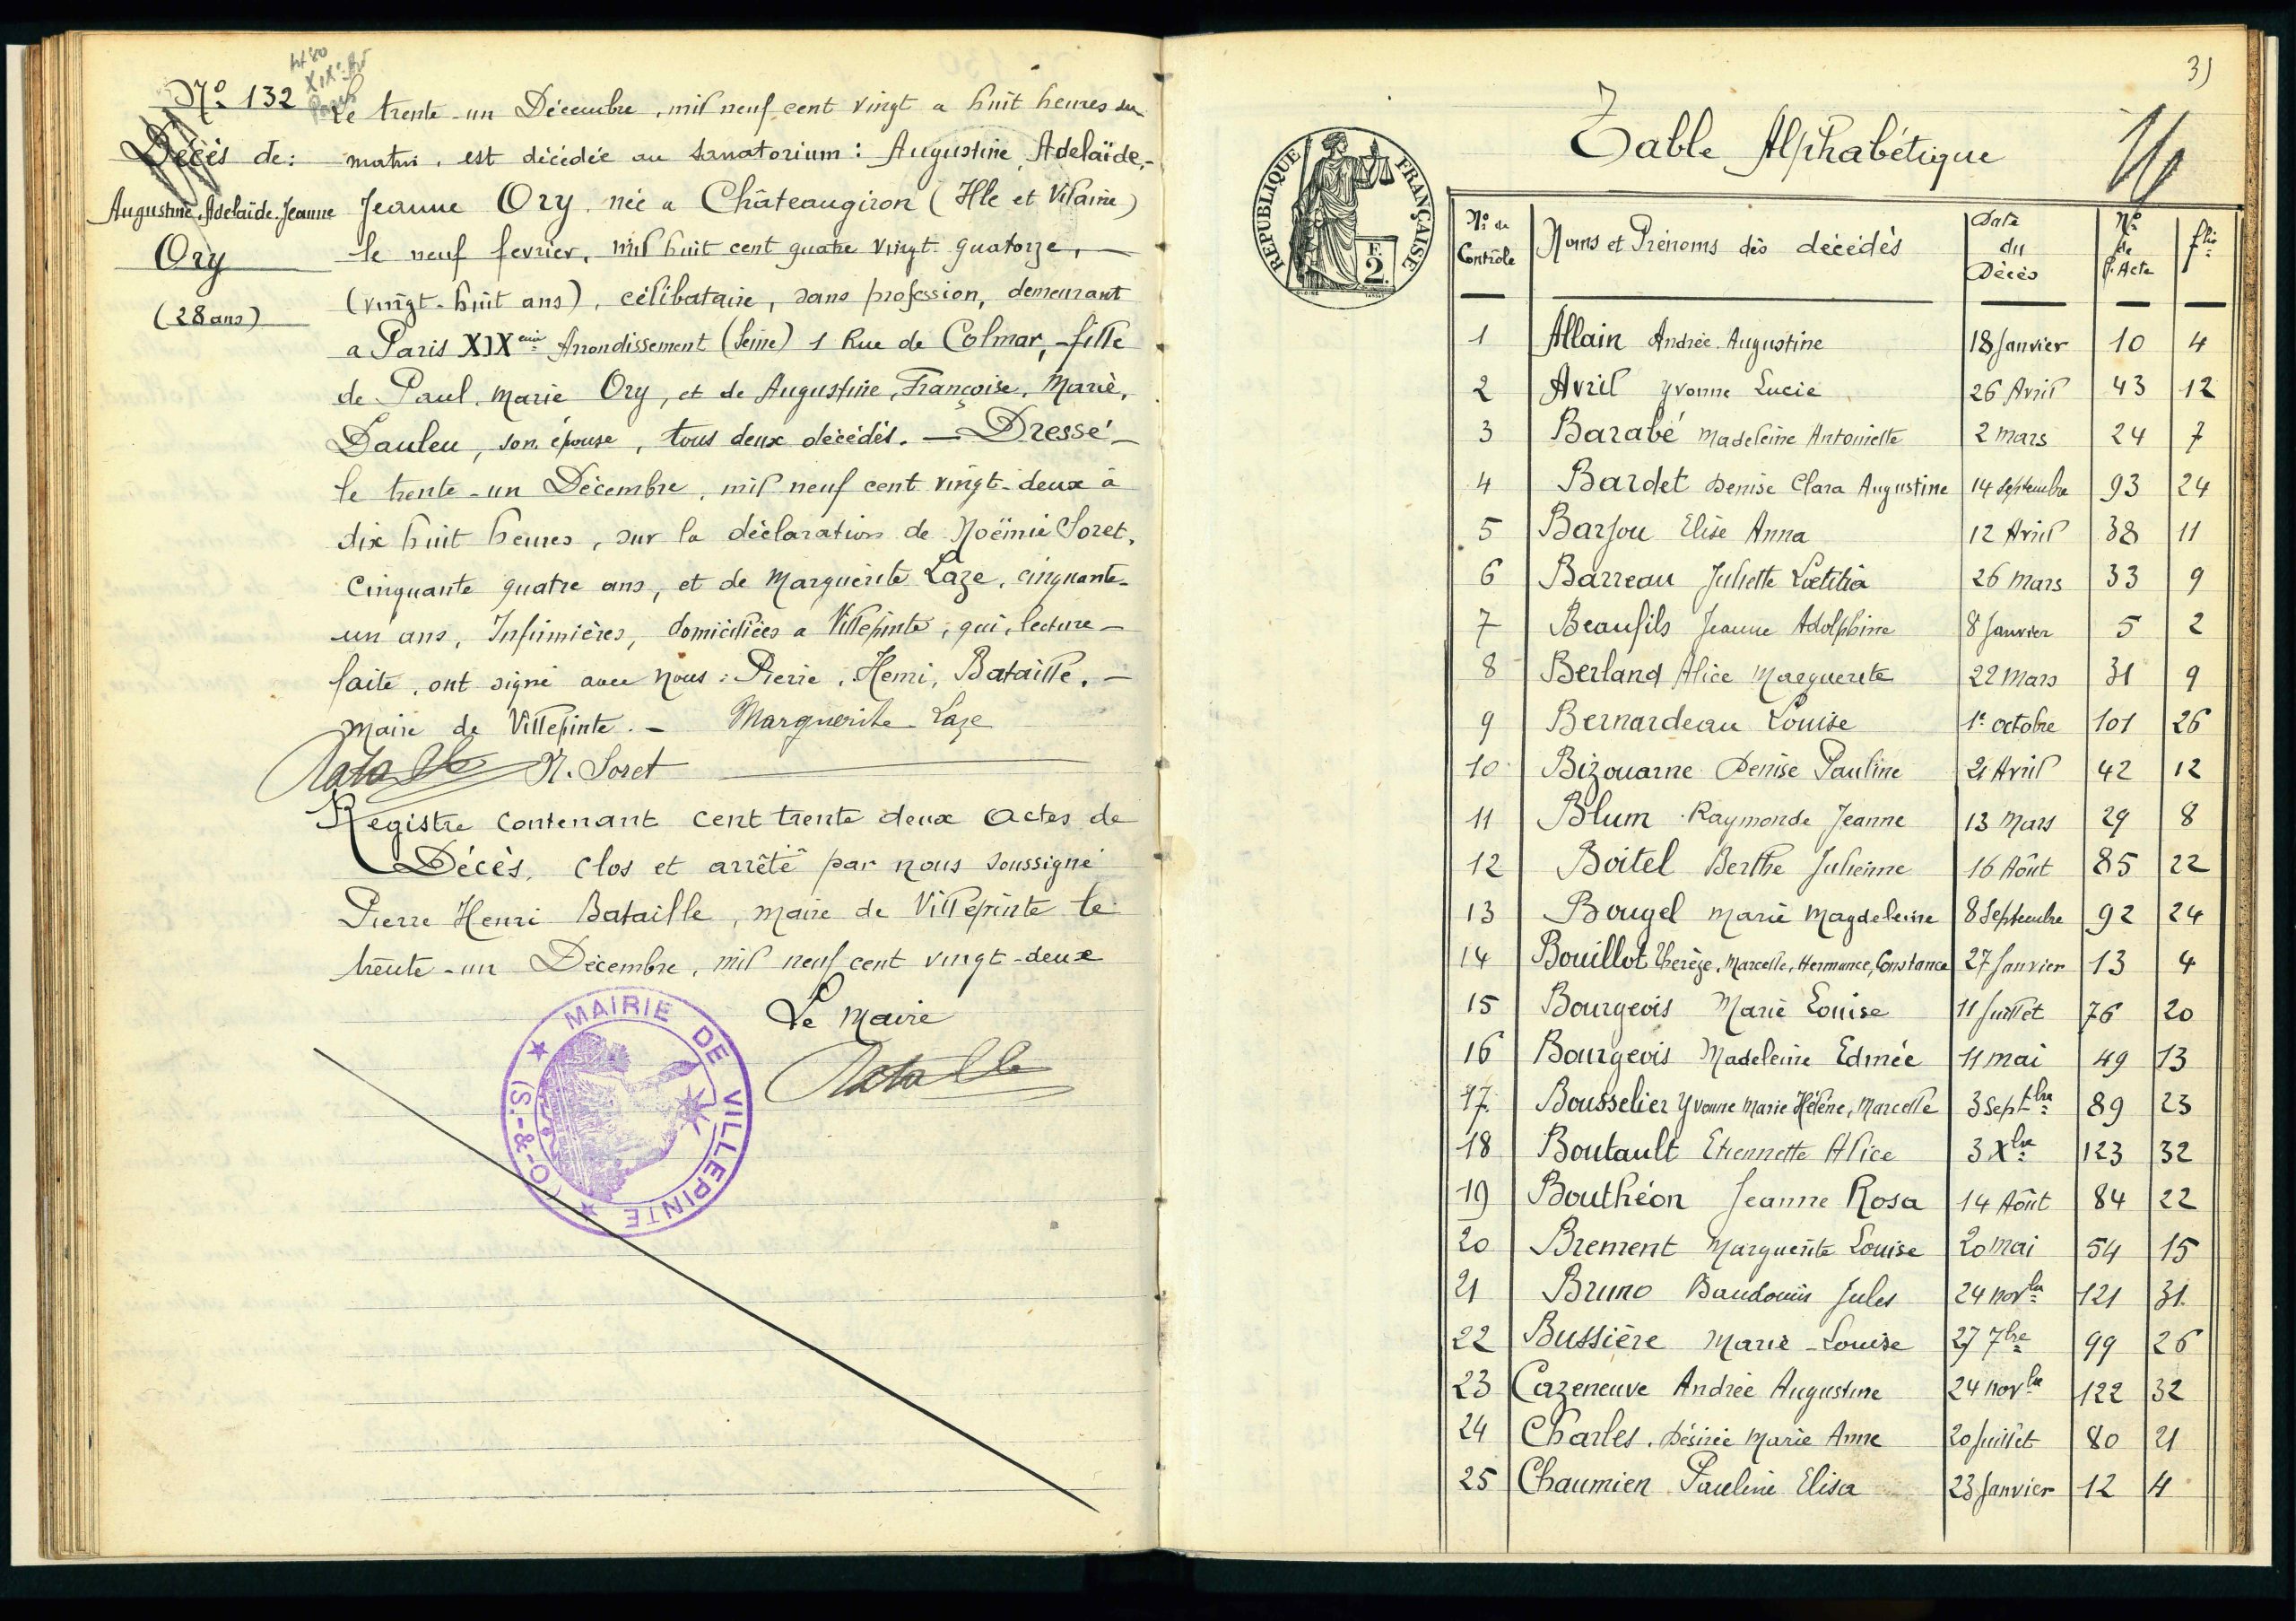 Nº 132
Décès de:
Augustine, Adelaïde, Jeanne
Ory
(28 ans)
Le trente-un Décembre, mil neuf cent vingt a huit heures du
matin, est décédée au sanatorium: Augustine, Adelaïde,-
Jeanne Ory, née a Châteaugiron (Ille et Vilaine)
le neuf fevrier, mil huit cent quatre vingt quatorze,-
(vingt-huit ans), célibataire, sans profession, demeurant
a Paris XIXeme Arrondissement (Seine) 1 Rue de Colmar,-fille
de Paul, Marie Ory, et de Augustine, Françoise, Marie,
Dauleu, son épouse, tous deux décédés.-Dressé-
le trente-un Décembre, mil neuf cent vingt-deux à
dix huit heures, sur la déclaration de Noëmie Soret,
cinquante quatre ans, et de Marguerite Laze, cinquante-
un ans, Infirmières, domiciliées a Villepinte, qui, lecture-
faite, ont signé avec nous: Pierre, Henri, Bataille,-
maire de Villepinte.- Marguerite Laze
Bataille N. Soret
Registre contenant cent trente deux actes de
Décès, clos et arrêté par nous soussigné
Pierre Henri Bataille, maire de Villepinte le
trente-un Décembre, mil neuf cent vingt-deux
Le Maire
Bataille
MAIRIE DE VILLEPINTE
(S.-&-O)
Table Alphabétique
REPUBLIQUE FRANÇAISE
F.
2.
Nº de Contrôle | Noms et Prénoms des décédés | Date du Décès | Nº de l'Acte | flio
1 Allain Andrée Augustine 18 Janvier 10 4
2 Avril Yvonne Lucie 26 Avril 43 12
3 Barabé Madeleine Antoinette 2 mars 24 7
4 Bardet Denise Clara Augustine 14 Septembre 93 24
5 Barjou Elise Anna 12 Avril 38 11
6 Barreau Juliette Lœtitia 26 mars 33 9
7 Beaufils Jeanne Adolphine 8 Janvier 5 2
8 Berland Alice Marguerite 22 Mars 31 9
9 Bernardeau Louise 1e octobre 101 26
10 Bizouarne Denise Pauline 21 Avril 42 12
11 Blum Raymonde Jeanne 13 Mars 29 8
12 Boitel Berthe Julienne 16 Août 85 22
13 Bougel Marie Magdeleine 8 Septembre 92 24
14 Bouillot Thérèze, Marcelle, Hermance, Constance 27 Janvier 13 4
15 Bourgeois Marie Louise 11 Juillet 76 20
16 Bourgeois Madeleine Edmée 11 mai 49 13
17. Bousselier Yvonne Marie Hélène, Marcelle 3 Septbre 89 23
18 Boutault Etiennette Alice 3 Xbre 123 32
19 Bouthéon Jeanne Rosa 14 Août 84 22
20 Brement Marguerite Louise 20 mai 54 15
21 Bruno Baudouin Jules 24 novbre 121 31
22 Bussière Marie-Louise 27 7bre 99 26
23 Cazeneuve Andrée Augustine 24 novbre 122 32
24 Charles, Désirée Marie Anne 20 Juillet 80 21
25 Chaumien Pauline Elisa 23 Janvier 12 4